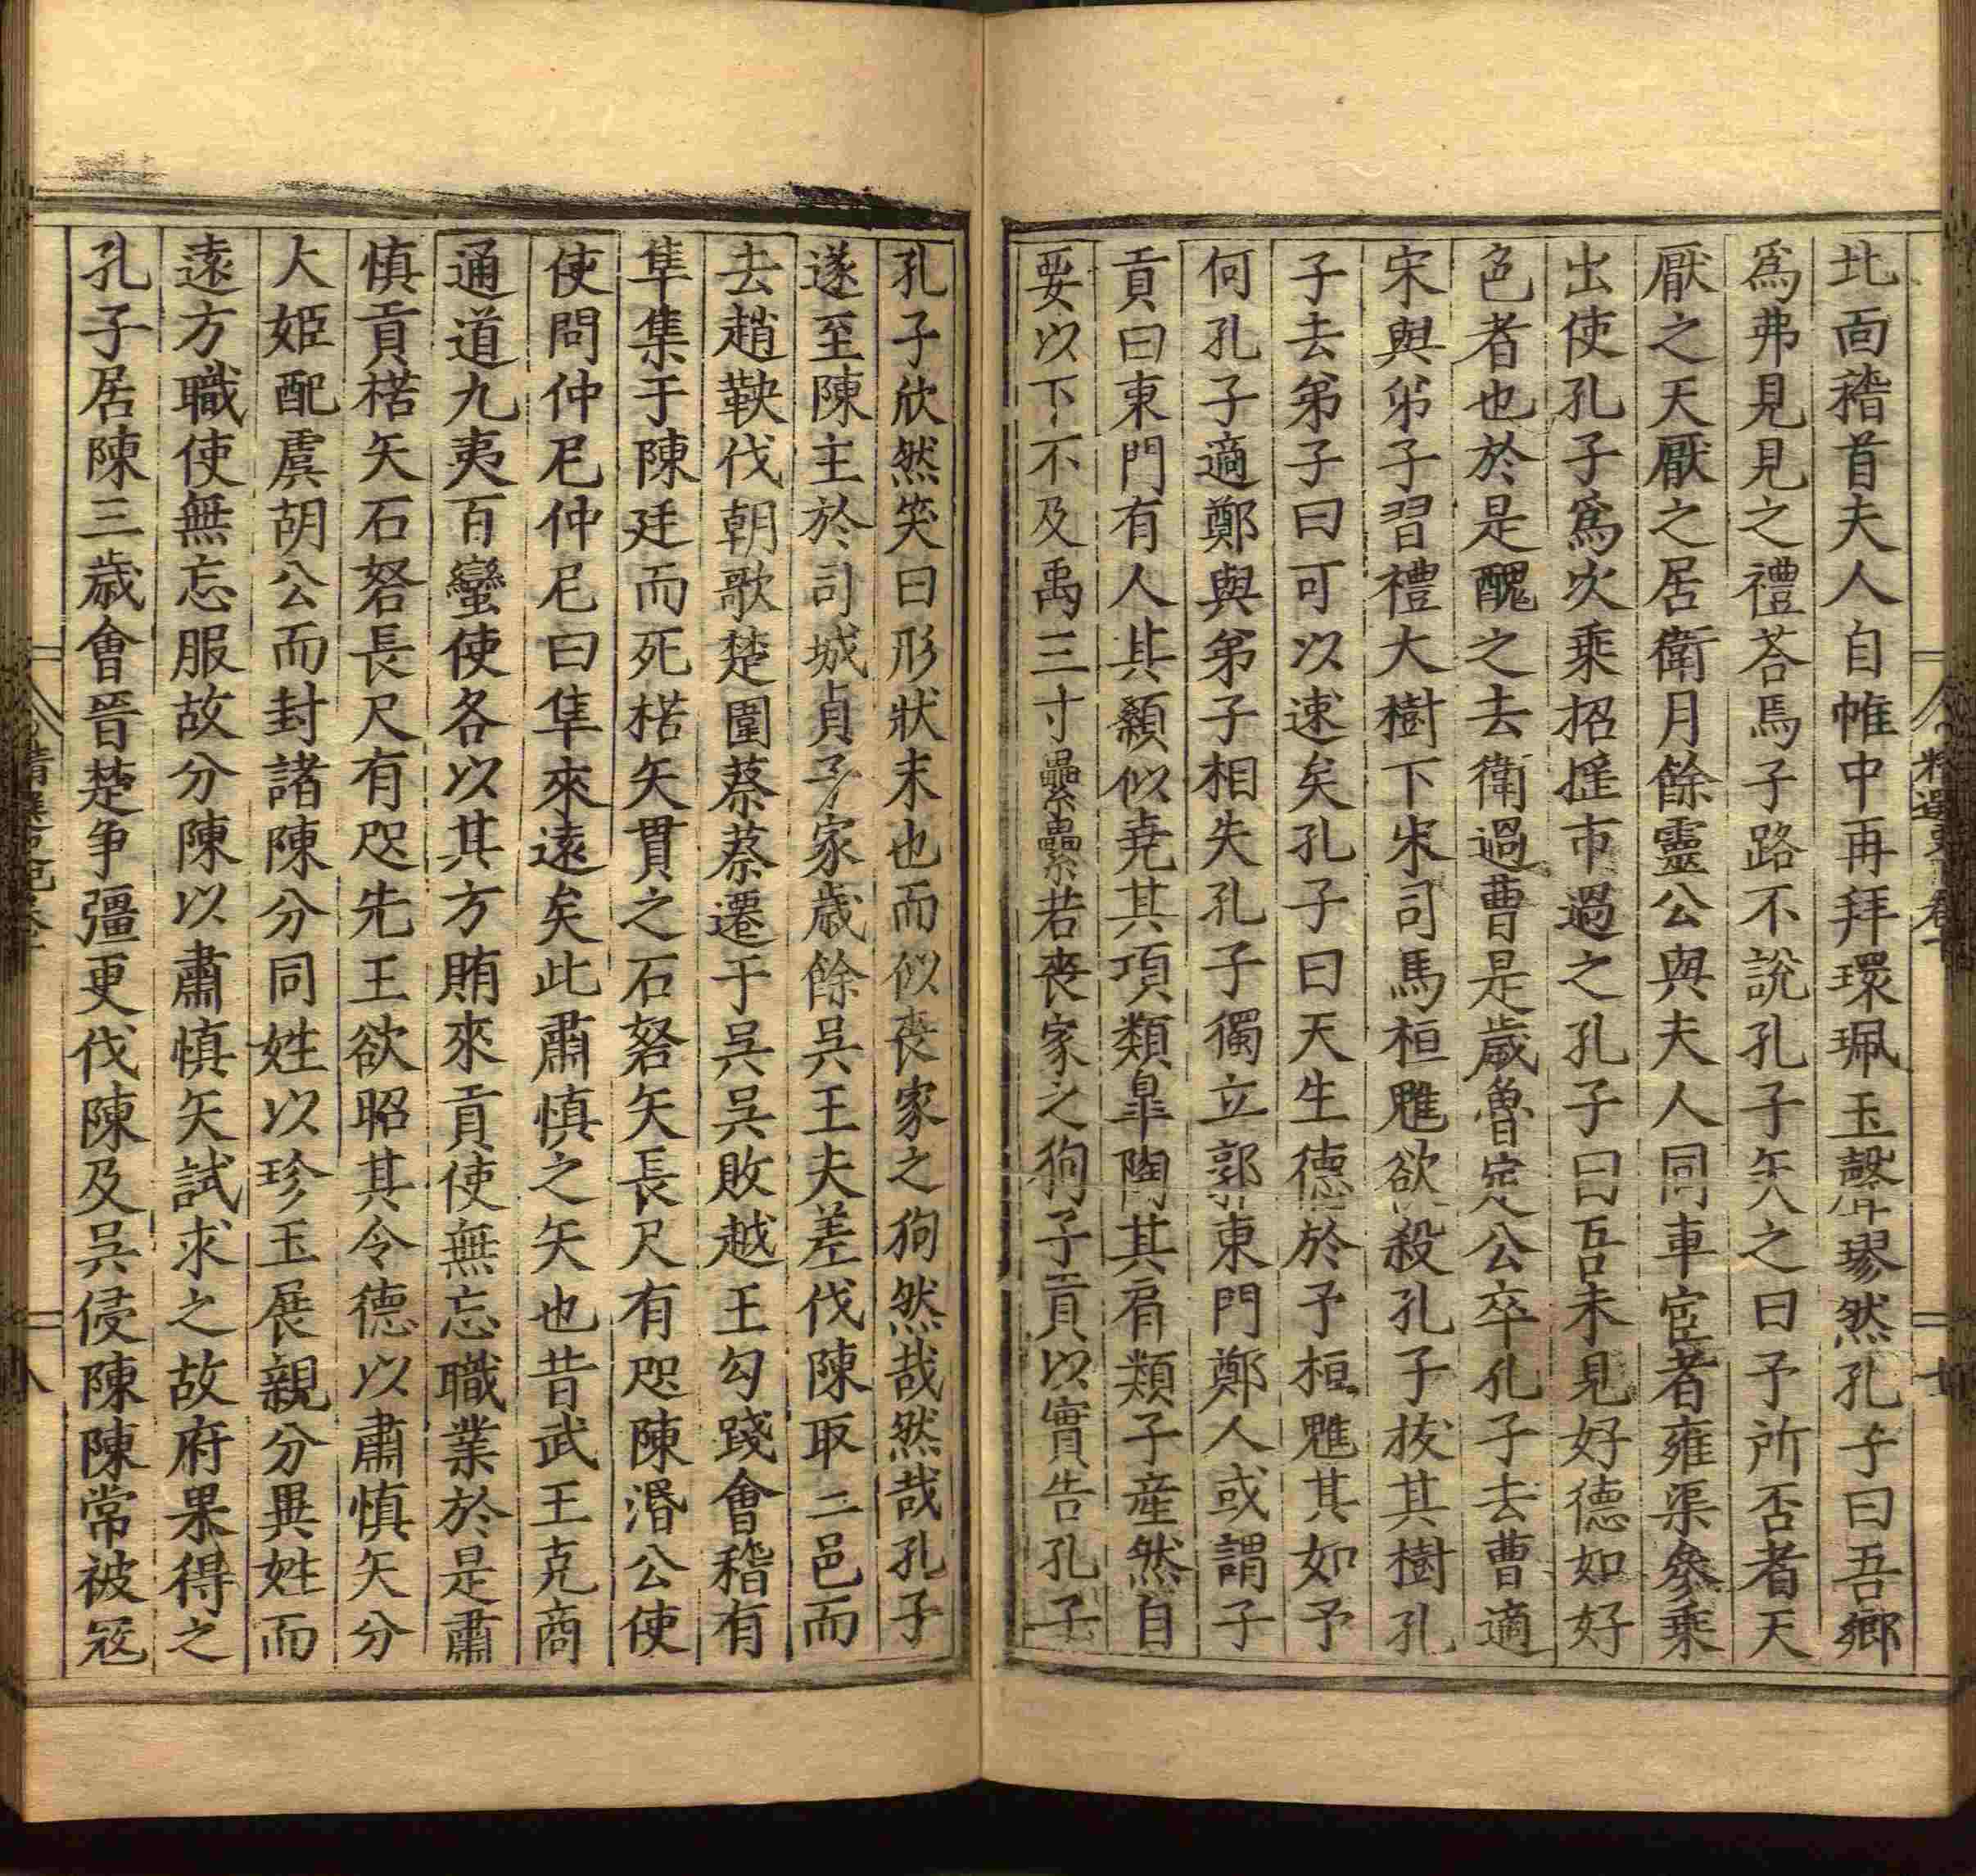 北面稽首夫人自帷中再拜環珮玉聲璆然孔子曰吾鄉
爲弗見見之禮荅焉子路不說孔子矢之曰予所否者天
厭之天厭之居衛月餘靈公與夫人同車宦者雍渠參乘
出使孔子爲次乘招搖市過之孔子曰吾未見好德如好
色者也於是醜之去衛過曹是歲魯定公卒孔子去曹適
宋與弟子習禮大樹下宋司馬桓魋欲殺孔子拔其樹孔
子去弟子曰可以速矣孔子曰天生德於予桓魋其如予
何孔子適鄭與弟子相失孔子獨立郭東門鄭人或謂子
貢曰東門有人其顙似堯其項類皐陶其肩類子產然自
要以下不及禹三寸纍纍若喪家之狗子貢以實告孔子
孔子欣然笑曰形狀末也而似喪家之狗然哉然哉孔子
遂至陳主於司城貞子家歲餘吳王夫差伐陳取二邑而
去趙鞅伐朝歌楚圍蔡蔡遷于吳吳敗越王勾踐會稽有
隼集于陳廷而死楛矢貫之石砮矢長尺有咫陳湣公使
使問仲尼仲尼曰隼來遠矣此肅慎之矢也昔武王克商
通道九夷百蠻使各以其方賄來貢使無忘職業於是肅
慎貢楛矢石砮長尺有咫先王欲昭其令德以肅慎矢分
大姬配虞胡公而封諸陳分同姓以珍玉展親分異姓而
遠方職使無忘服故分陳以肅慎矢試求之故府果得之
孔子居陳三歲會晉楚爭彊更伐陳及吳侵陳陳常被寇